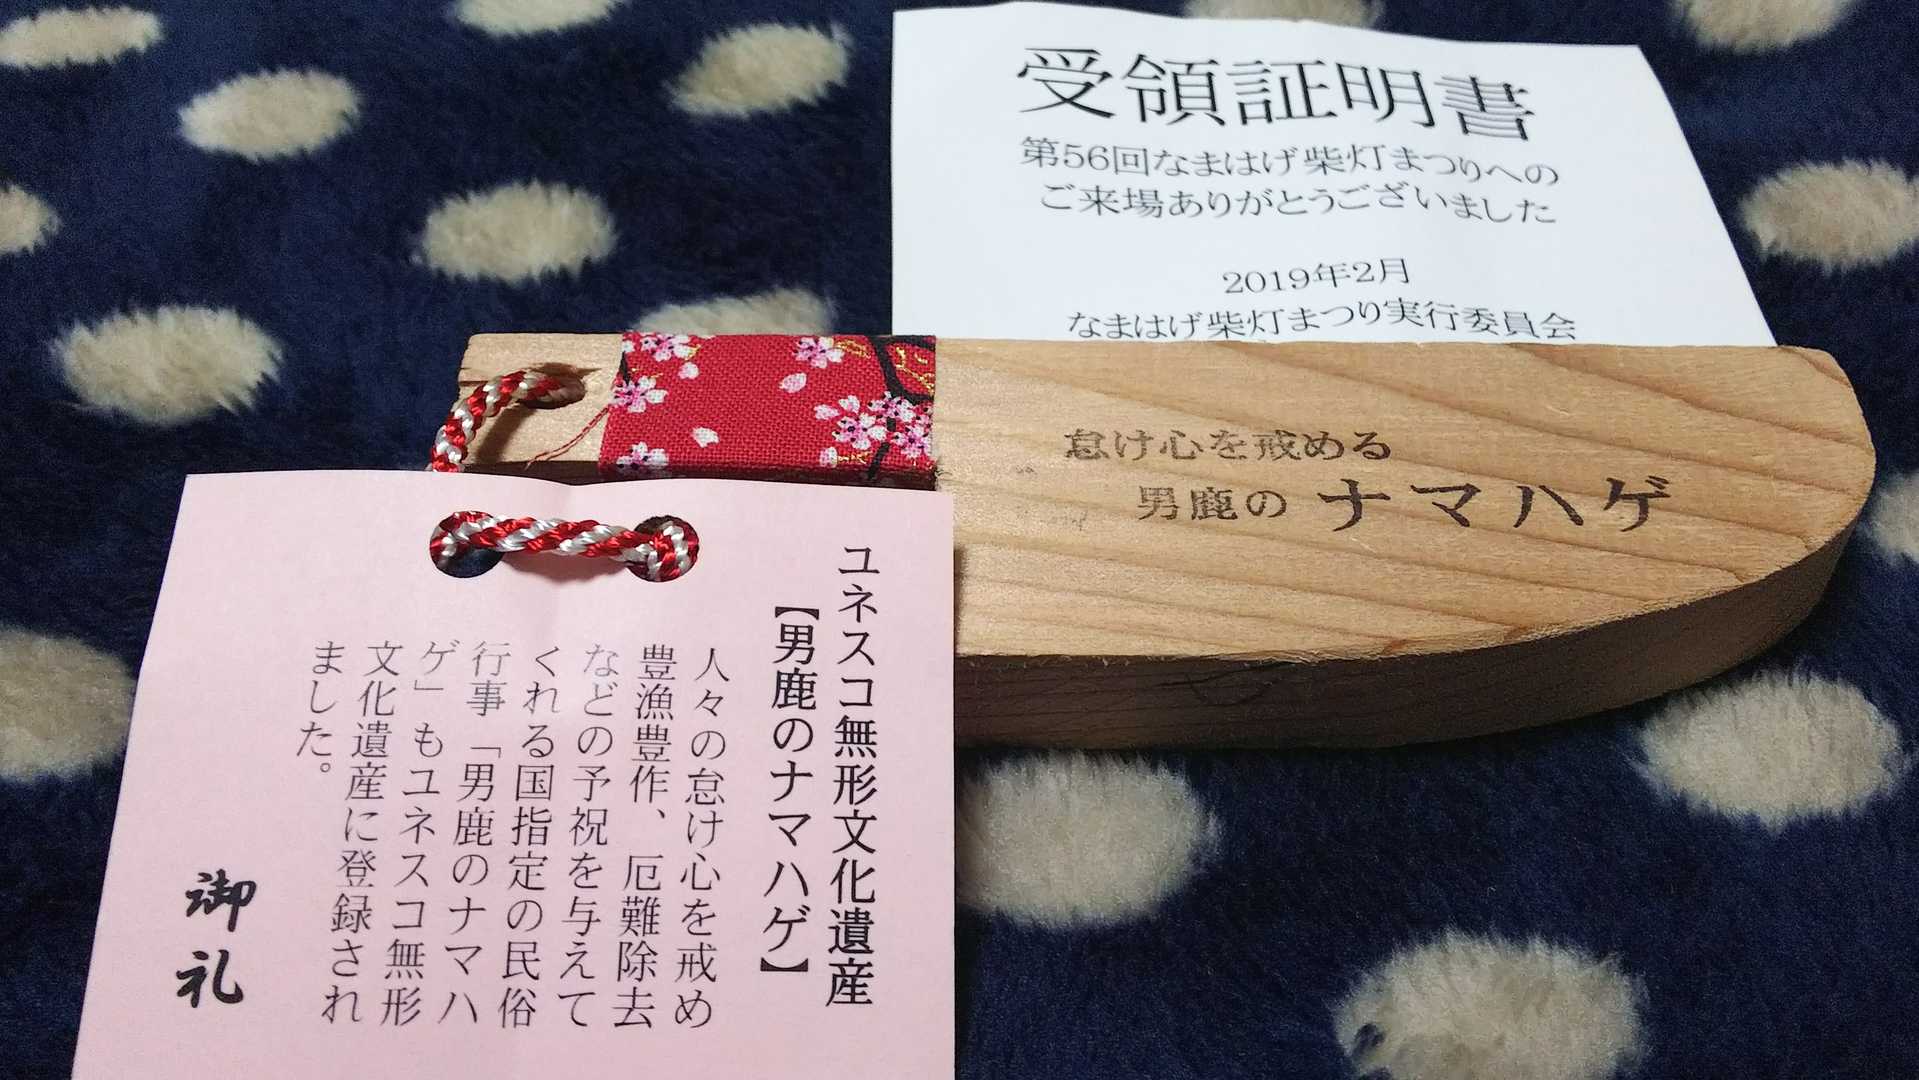 受領証明書
第56回なまはげ柴灯まつりへの
ご来場ありがとうございました
2019年2月
なまはげ柴灯まつり実行委員会
怠け心を戒める
男鹿のナマハゲ
ユネスコ無形文化遺産
【男鹿のナマハゲ】
人々の怠け心を戒め
豊漁豊作、厄難除去
などの予祝を与えて
くれる国指定の民俗
行事「男鹿のナマハ
ゲ」もユネスコ無形
文化遺産に登録され
ました。
御礼